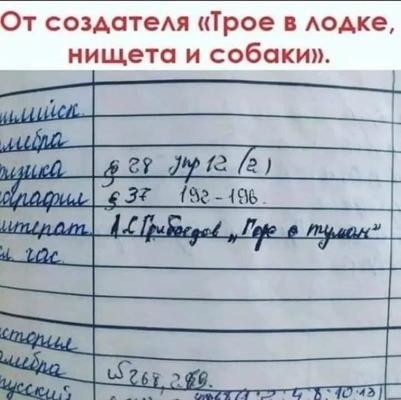 От создателя «Трое в лодке,
нищета и собаки».
глийск.
лгебра
физика § 28 упр 12 (2)
ография § 37 192-196.
итерат. А.С Грибоедов „Горе о туман"
л. час
стория
лгебра №268, 269.
русский